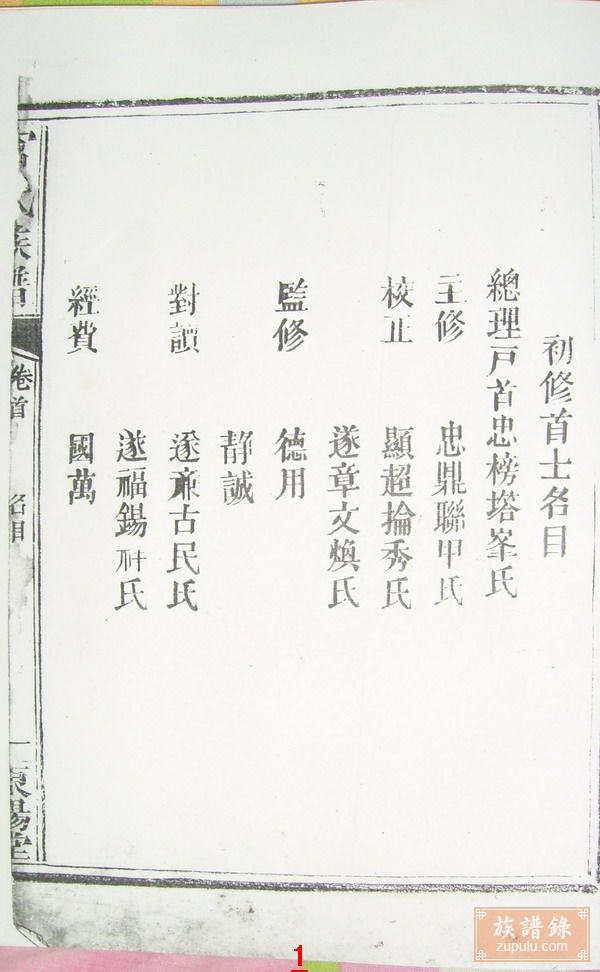 初修首士名目
總理戸首忠榜塔峯氏
主修 忠鼎聯甲氏
校正 顯超掄秀氏
遂章文煥氏
監修 德用
靜誠
對讀 遂廉古民氏
遂福錫祚氏
經費 國萬
氏族譜
卷首
名目
一
東陽堂
族譜錄
zupulu.com
1